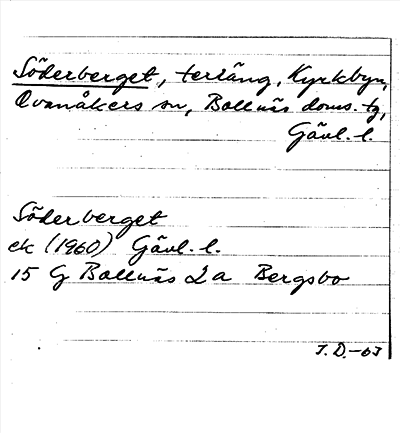 Söderberget, terräng, Kyrkbyn,
Ovanåkers sn, Bollnäs doms. tg,
Gävl. l.
Söderberget
ek (1960) Gävl. l.
15 G Bollnäs 2 a Bergsbo
J. D. -63